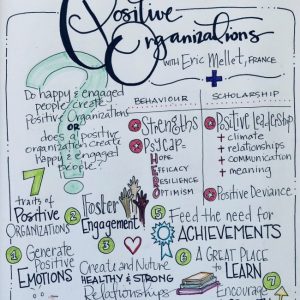 Positive
Organizations
WITH Eric Mellet, FRANCE
Do happy & engaged
people create
Positive Organizations
OR
does a positive
organization create
happy & engaged
people?
BEHAVIOUR
Strengths
PsyCap =
HOPE
EFFICACY
RESILIENCE
OPTIMISM
SCHOLARSHIP
Positive Leadership
+ climate
+ relationships
+ communication
+ meaning
Positive Deviance
7
traits of
Positive
ORGANIZATIONS
1 Generate
Positive
EMOTIONS
2 Foster
Engagement
3
Create and Nuture
HEALTHY & STRONG
Relationships
5 Feed the need for
ACHIEVEMENTS
6 A GREAT Place
to LEARN
7
Encourage